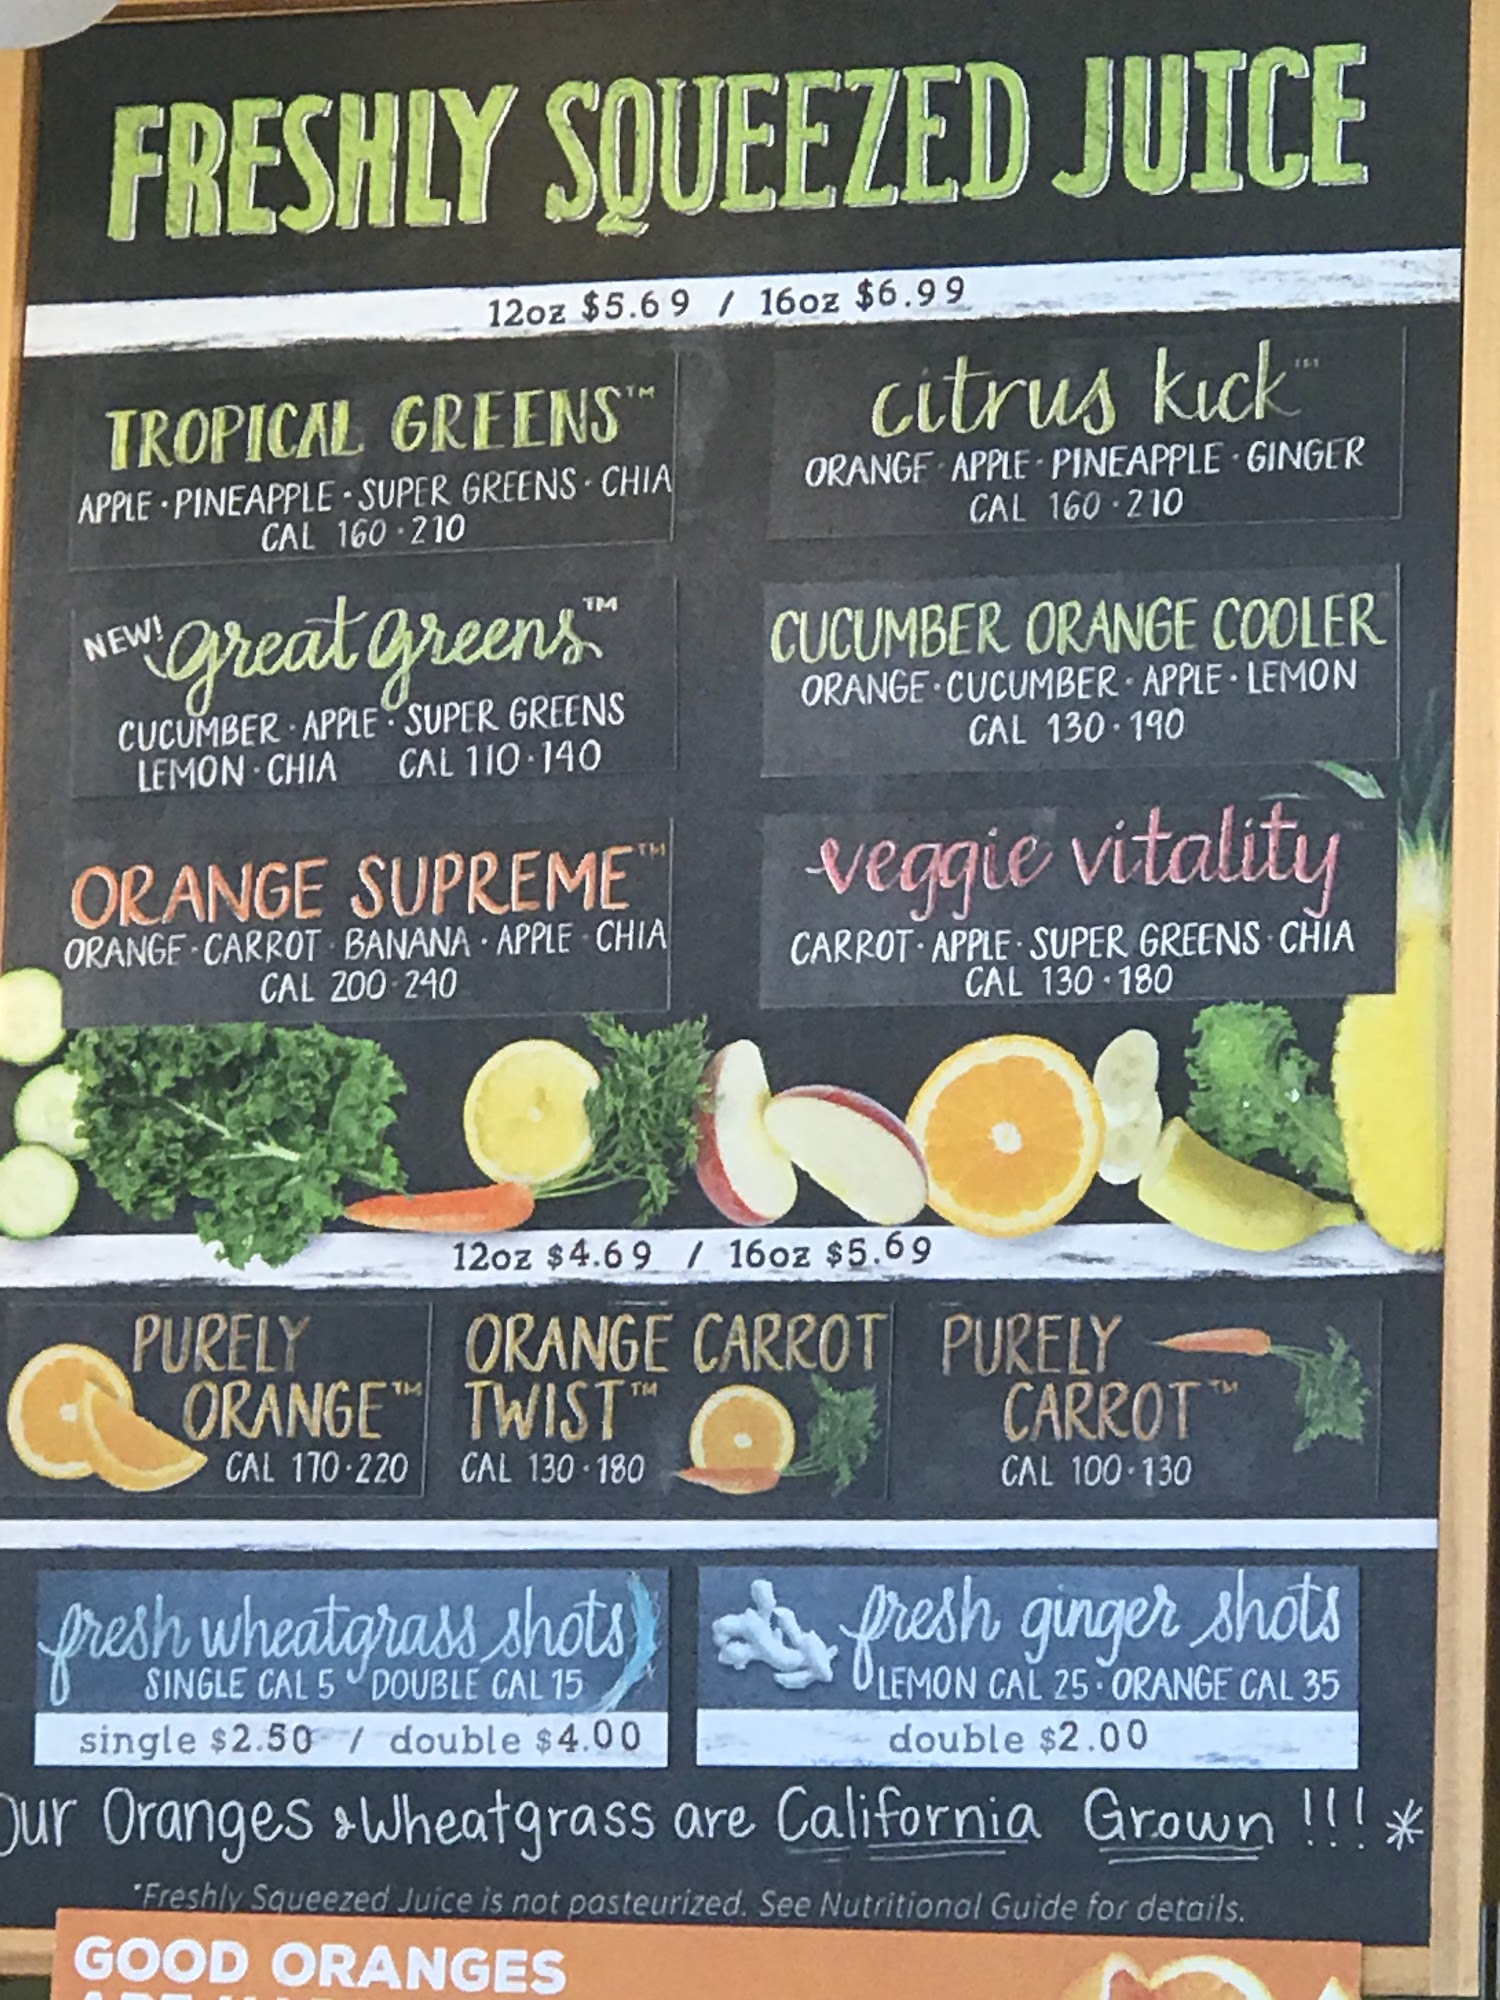 FRESHLY SQUEEZED JUICE
12oz $5.69 / 16oz $6.99
TROPICAL GREENS™
APPLE · PINEAPPLE · SUPER GREENS · CHIA
CAL 160 · 210
citrus kick™
ORANGE · APPLE · PINEAPPLE · GINGER
CAL 160 · 210
NEW! great greens™
CUCUMBER · APPLE · SUPER GREENS
LEMON · CHIA CAL 110 · 140
CUCUMBER ORANGE COOLER
ORANGE · CUCUMBER · APPLE · LEMON
CAL 130 · 190
ORANGE SUPREME™
ORANGE · CARROT · BANANA · APPLE · CHIA
CAL 200 · 240
veggie vitality™
CARROT · APPLE · SUPER GREENS · CHIA
CAL 130 · 180
12oz $4.69 / 16oz $5.69
PURELY
ORANGE™
CAL 170 · 220
ORANGE CARROT
TWIST™
CAL 130 · 180
PURELY
CARROT™
CAL 100 · 130
fresh wheatgrass shots
SINGLE CAL 5 DOUBLE CAL 15
single $2.50 / double $4.00
fresh ginger shots
LEMON CAL 25 · ORANGE CAL 35
double $2.00
Our Oranges & Wheatgrass are California Grown !!! *
*Freshly Squeezed Juice is not pasteurized. See Nutritional Guide for details.
GOOD ORANGES